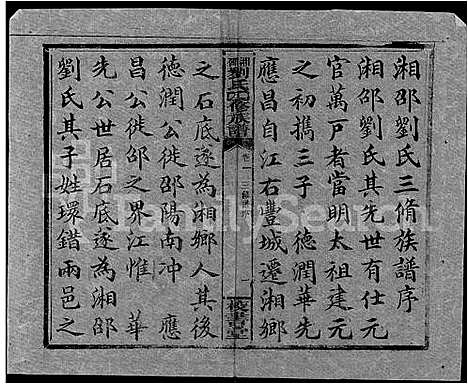 湘邵劉氏三脩族譜序
湘邵劉氏其先世有仕元
官萬戸者當明太祖建元
之初攜三子 德潤華先
應昌自江右豐城遷湘鄉
湘鄉劉氏三修族譜
卷一 三修譜序
一
藜書堂
之石底遂為湘鄉人其後
德潤公徙邵陽南冲 應
昌公徙邵之界江惟 華
先公世居石底遂為湘邵
劉氏其子姓環錯兩邑之
FamilySearch